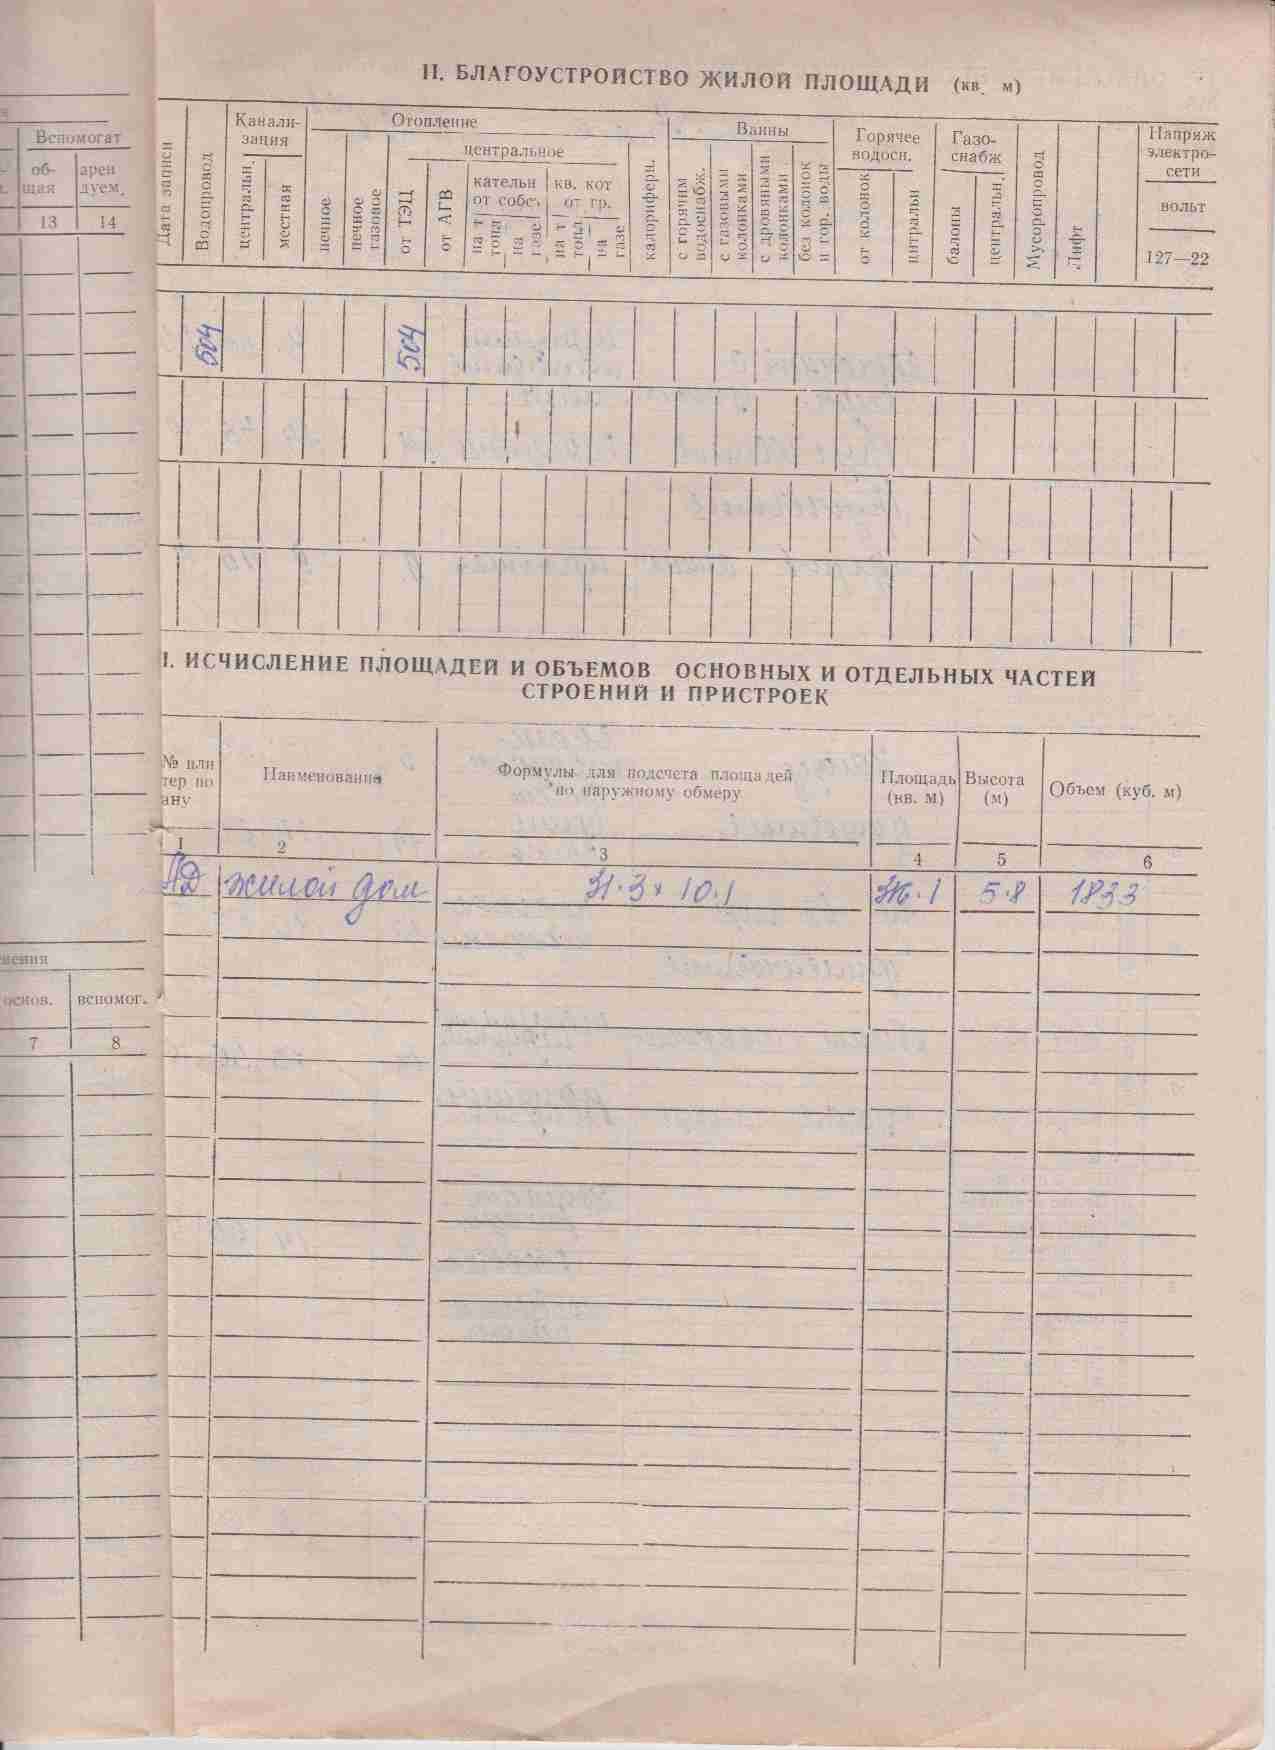 II. БЛАГОУСТРОЙСТВО ЖИЛОЙ ПЛОЩАДИ (кв. м)
Дата записи
Водопровод
Канали-
зация
центральн.
местная
Отопление
печное
печное
газовое
центральное
от ТЭЦ
от АГВ
кательн
от собс.
на т
топл.
на
газе
кв. кот
от гр.
на т
топл.
на
газе
калориферн.
Ванны
с горячим
водоснабж.
с газовыми
колонками
с дровяными
колонками
без колонок
и гор. воды
Горячее
водосн.
от колонок
центральн
Газо-
снабж
балоны
центральн.
Мусоропровод
Лифт
Напряж
электро-
сети
вольт
127—22
504
504
I. ИСЧИСЛЕНИЕ ПЛОЩАДЕЙ И ОБЪЕМОВ ОСНОВНЫХ И ОТДЕЛЬНЫХ ЧАСТЕЙ
СТРОЕНИЙ И ПРИСТРОЕК
№ или
тер по
ану
Наименование
Формулы для подсчета площадей
по наружному обмеру
Площадь
(кв. м)
Высота
(м)
Объем (куб. м)
1 2 3 4 5 6
жилой дом 31.3 x 10.1 316.1 5.8 1833
Вспомогат
об-
щая
арен
дуем.
13 14
мения
основ. вспомог.
7 8